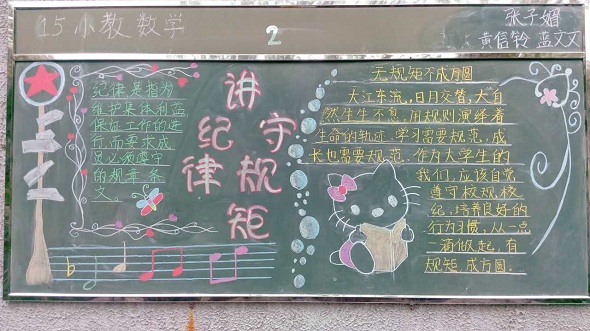 15小教数学
2
张子媚
黄信铃 蓝文文
纪律是指为
维护集体利益
保证工作的进
行,而要求成
员必须遵守
的规章条
文。
讲纪律
守规矩
无规矩不成方圆
大江东流,日月交替,大自
然生生不息,用规则演绎着
生命的轨迹。学习需要规范,成
长也需要规范。作为大学生的
我们,应该自觉
遵守校规校
纪,培养良好的
行为习惯,从一点
一滴做起,有
规矩,成方圆。